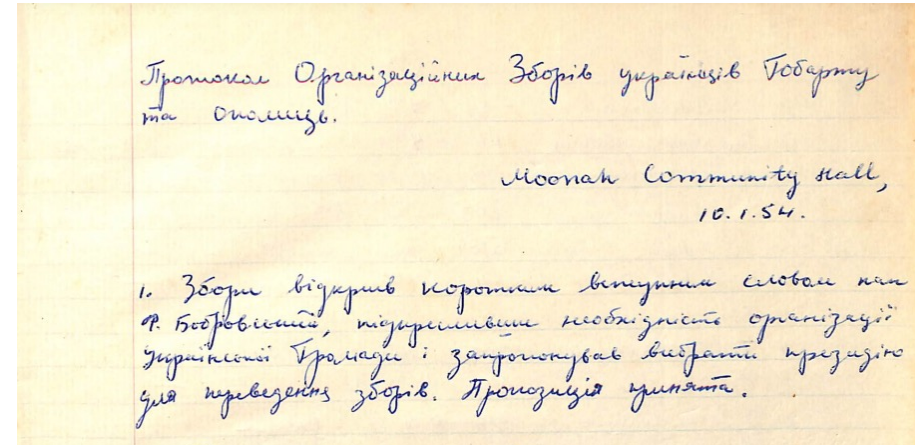 Протокол Організаційних Зборів українців Гобарту
та околиць.
Moonah Community Hall,
10.1.54.
1. Збори відкрив коротким вступним словом пан
Ф. Бобровський, підкресливши необхідність організації
Української Громади і запропонував вибрати президію
для переведення зборів. Пропозиція принята.